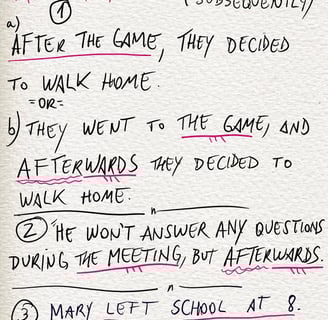 (SUBSEQUENTLY)
①
a)
AFTER THE GAME, THEY DECIDED
TO WALK HOME.
=OR=
b) THEY WENT TO THE GAME, AND
AFTERWARDS THEY DECIDED TO
WALK HOME.
② "HE WON'T ANSWER ANY QUESTIONS
DURING THE MEETING, BUT AFTERWARDS.
③ MARY LEFT SCHOOL AT 8.